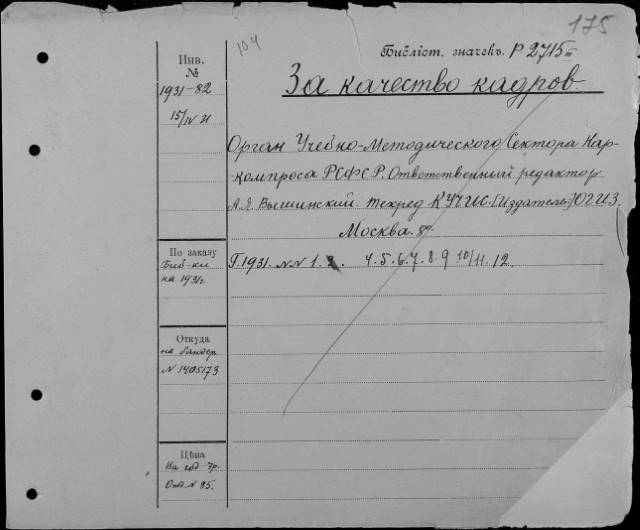 175
104
Библіот. значекъ Р 2715
За качество кадров
Инв.
№
1931-82
15/IV 31
Орган Учебно-Методического Сектора Нар-
компроса РСФСР. Ответственный редактор
А.Я. Вышинский. Техред КУЧИС. [Издатель:] ОГИЗ.
Москва. 8º.
По заказу
Биб-ки
на 1931г.
Г. 1931. NN 1. 2. 4. 5. 6. 7. 8. 9 10/11. 12.
Откуда
на
N 1405173
Цѣна
На год
Отд. N 85.